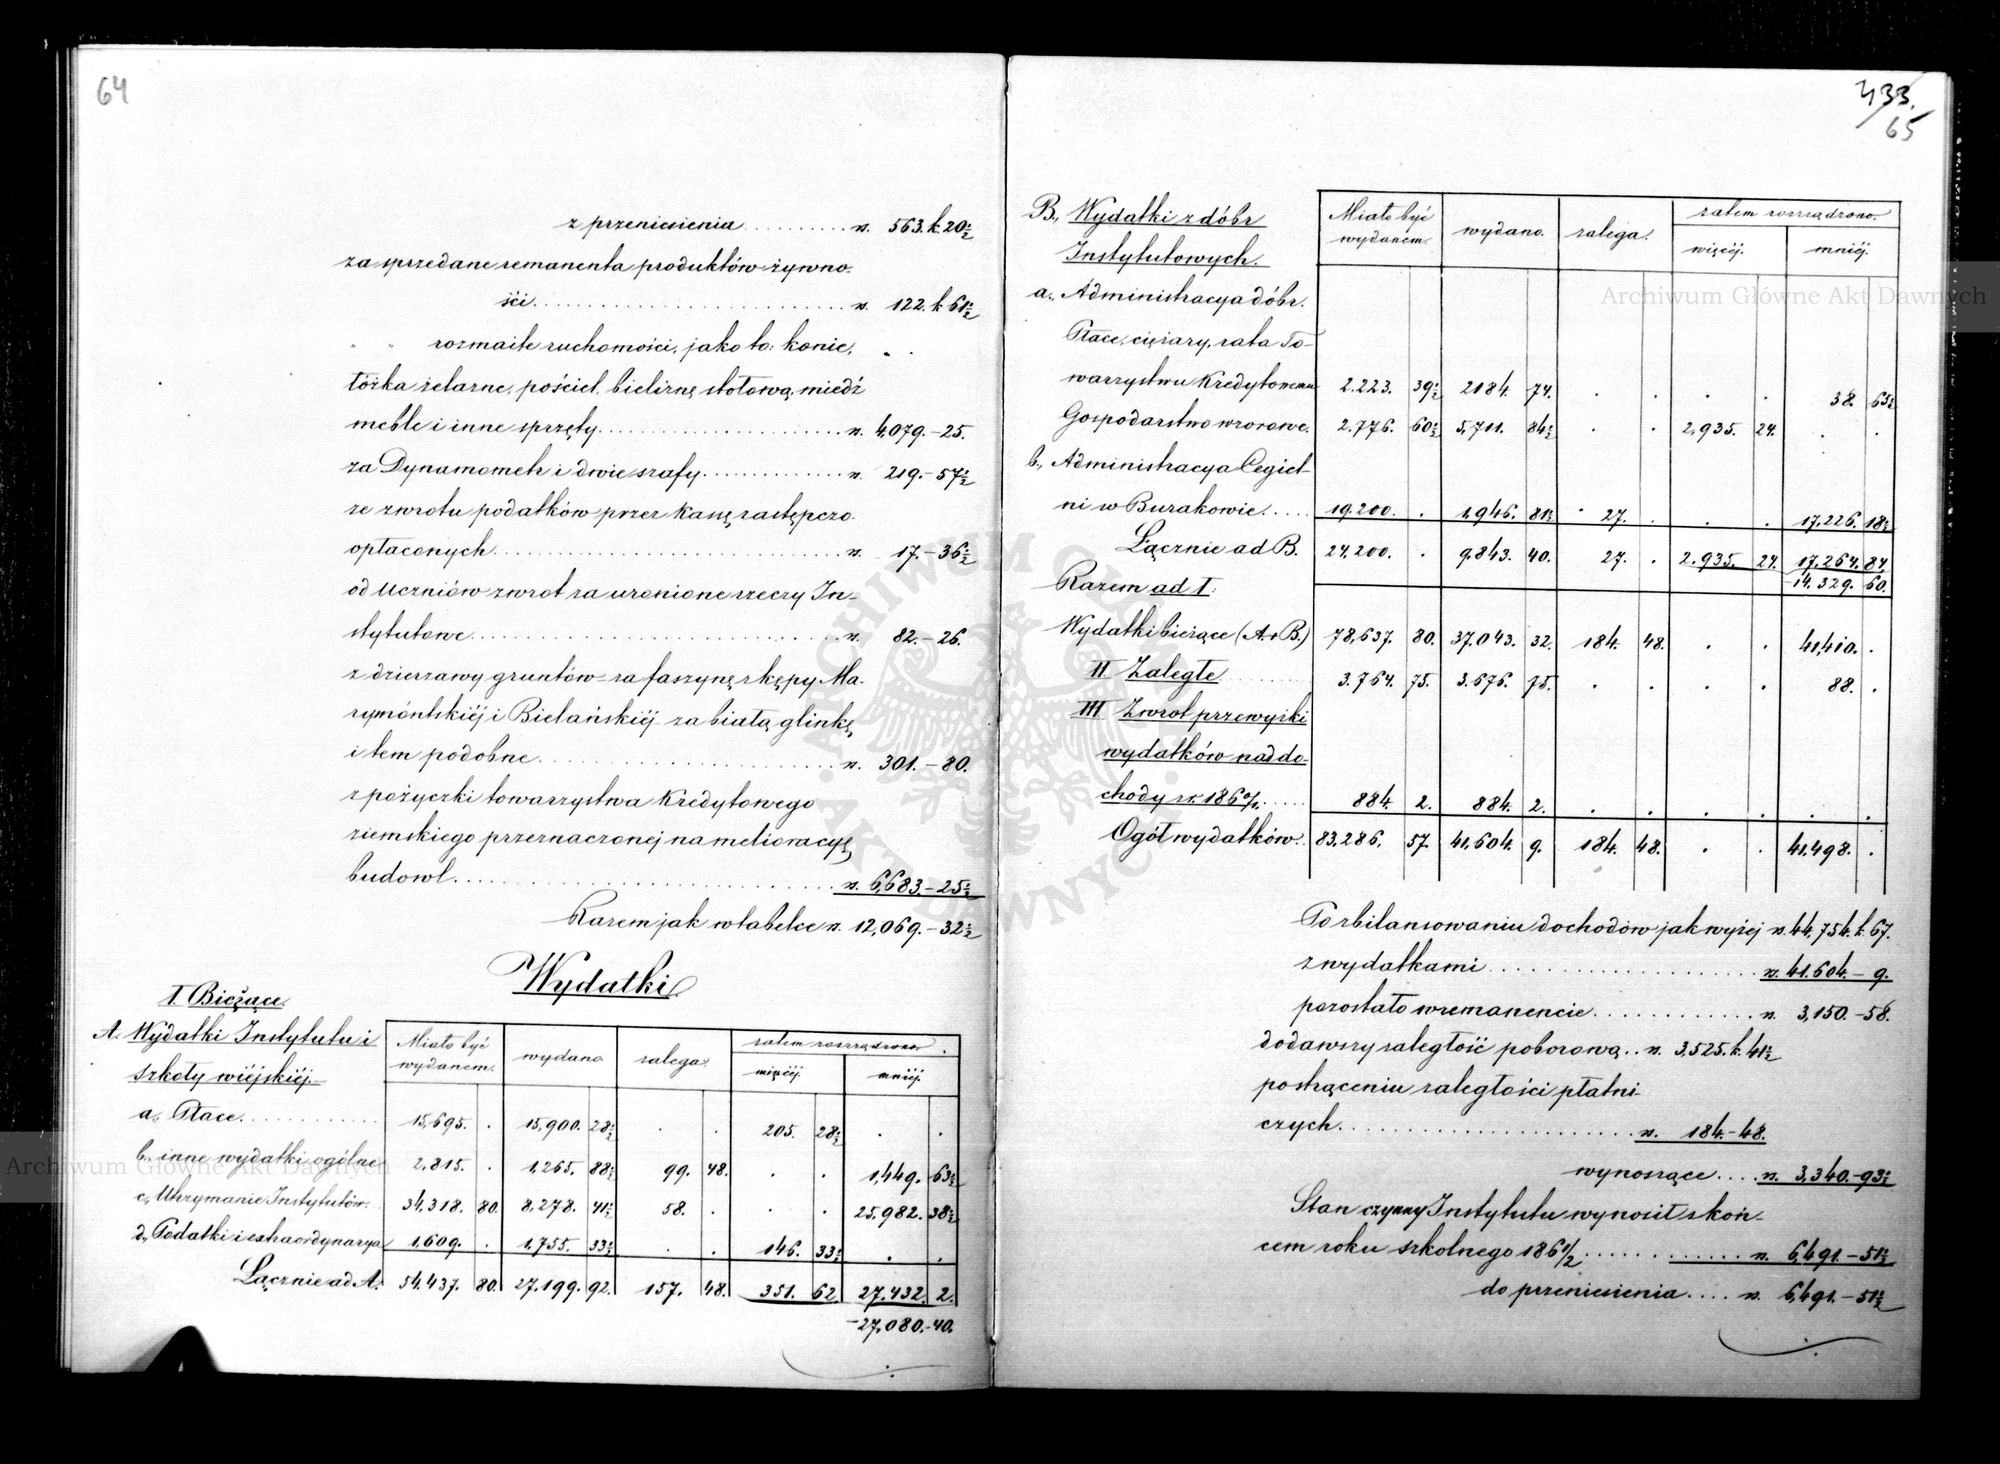 64
z przeniesienia . . . . . . . . . rs. 563. k. 20½
za sprzedane remanenta produktów żywno-
ści . . . . . . . . . . . . . . . . . . rs. 122. k 61½
" " rozmaite ruchomości, jako to: konie,
łóżka żelazne, pościel, bieliznę stołową, miedź
meble i inne sprzęty . . . . . . . . . . . . rs. 4,079.-25.
za Dynamometr i dwie szafy . . . . . . . . . rs. 219.-57½
ze zwrotu podatków przez kassę zastępczo
opłaconych . . . . . . . . . . . . . . . . . . rs. 17.-36½
od Uczniów zwrot za uronione rzeczy In-
stytutowe . . . . . . . . . . . . . . . . . . . rs. 82.-26.
z dzierżawy gruntów za faszynę z kępy Ma-
rymontskiéj i Bielańskiéj za białą glinkę
i tem podobne . . . . . . . . . . . . . . . . rs. 301.-80.
z pożyczki towarzystwa Kredytowego
ziemskiego przeznaczonej na melioracyę
budowl . . . . . . . . . . . . . . . . . . . . rs. 6,683.-25½
Razem jak w tabelce rs. 12,069.-32½
Wydatki
I. Bieżące
A. Wydatki Instytutu i szkoły wiéjskiéj | Miało być wydanem. | wydano | zalega. | zatem rozrządzono. więcéj. | mniéj.
a., Płace . . . . . . . . . . 15,695. . 15,900. 28½ . . 205. 28½ . .
b. inne wydatki ogólne 2,815. . 1,265. 88½ 99. 48. . . 1,449. 63½
c., Utrzymanie Instytutów. 34,318. 80. 8,278. 41½ 58. . . . 25,982. 38½
d., Podatki i extraordynarya 1,609. . 1,755. 33½ . . 146. 33½ . .
Łącznie ad A. 54,437. 80. 27,199. 92. 157. 48. 351. 62. 27,432. 2.
-27,080.-40.
433.
65
B., Wydatki z dóbr Instytutowych. | Miało być wydanem. | wydano. | zalega. | zatem rozrządzono. więcéj. | mniéj.
a., Administracya dóbr.
Płace, ciężary, rata To-
warzystwu Kredytowemu 2.223. 39½ 2184. 74. . . . . 38. 65½
Gospodarstwo wzorowe. 2.776. 60½ 5,711. 84½ . . 2,935. 24. . .
b., Administracya Cegiel-
ni w Burakowie . . . . 19.200. . 1,946. 81½ 27. . . . 17,226. 18½
Łącznie ad B. 24,200. . 9.843. 40. 27. . 2.935. 24. 17,264. 84.
-14.329. 60.
Razem ad I.
Wydatki bieżące (A. + B.) 78,637. 80. 37.043. 32. 184. 48. . . 41,410. .
II Zaległe 3.764. 75. 3.676. 75. . . . . 88. .
III Zwrot przewyżki
wydatków nad do-
chody z r. 1860/1 . . . . 884. 2. 884. 2. . . . . . .
Ogół wydatków. 83,286. 57. 41,604. 9. 184. 48. . . 41,498. .
Po zbilansowaniu dochodów jak wyżej rs. 44,754. k. 67.
z wydatkami . . . . . . . . . . . . . . . . . rs. 41.604.- 9.
pozostało w remanencie . . . . . . . . . . . . rs. 3,150.-58.
dodawszy zaległość poborową . . rs. 3,525. k. 41½
po strąceniu zaległości płatni-
czych . . . . . . . . . . . . . . . . . rs. 184.-48.
wynoszące . . . . rs. 3,340.-93½
Stan czynny Instytutu wynosił z koń-
cem roku szkolnego 1861/2 . . . . . . . . . . rs. 6,491.-51½
do przeniesienia . . . . rs. 6,491.-51½
Archiwum Główne Akt Dawnych
Archiwum Główne Akt Dawnych
ARCHIWUM GŁÓWNE AKT DAWNYCH